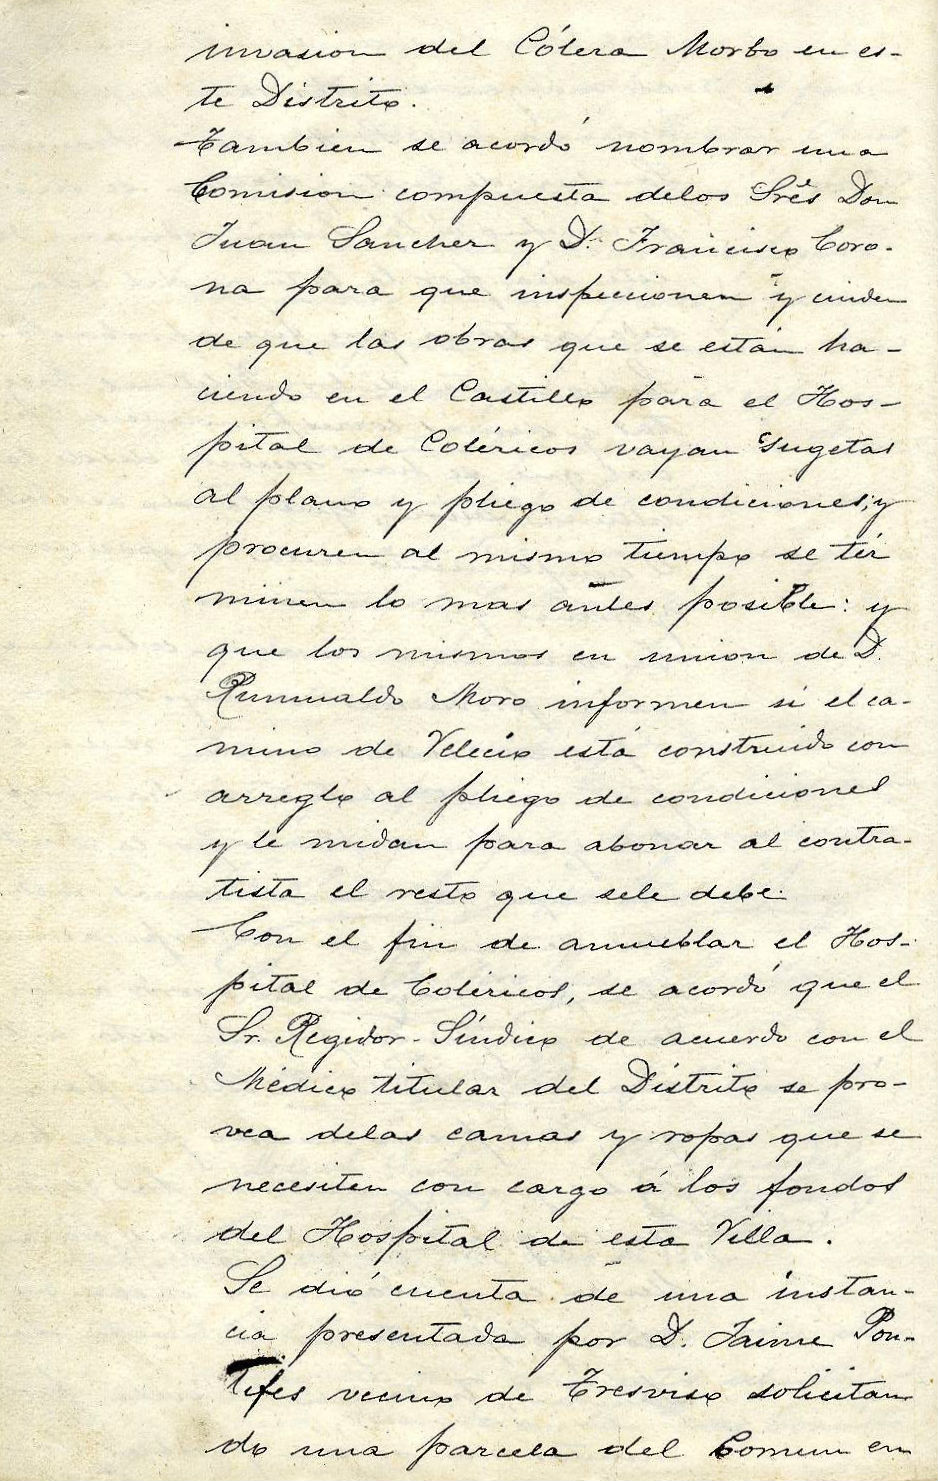 invasion del Cólera Morbo en es-
te Distrito.
Tambien se acordó nombrar una
Comision compuesta delos Srēs Don
Juan Sancher y D. Francisco Coro-
na para que inspeccionen y cuiden
de que las obras que se están ha-
ciendo en el Castillo para el Hos-
pital de Coléricos vayan sugetas
al plano y pliego de condiciones; y
procuren al mismo tiempo se tér
minen lo mas antes posible: y
que los mismos en union de D.
Rumualdo Moro informen si el ca-
mino de Velecio está construido con
arreglo al pliego de condiciones
y le midan para abonar al contra-
tista el resto que sele debe.
Con el fin de amueblar el Hos-
pital de Coléricos, se acordó que el
Sr. Regidor-Síndico de acuerdo con el
Médico titular del Distrito se pro-
vea delas camas y ropas que se
necesiten con cargo á los fondos
del Hospital de esta Villa.
Se dió cuenta de una instan-
cia presentada por D. Jaime Pon-
tifes vecino de Tresviso solicitan
do una parcela del Comun en